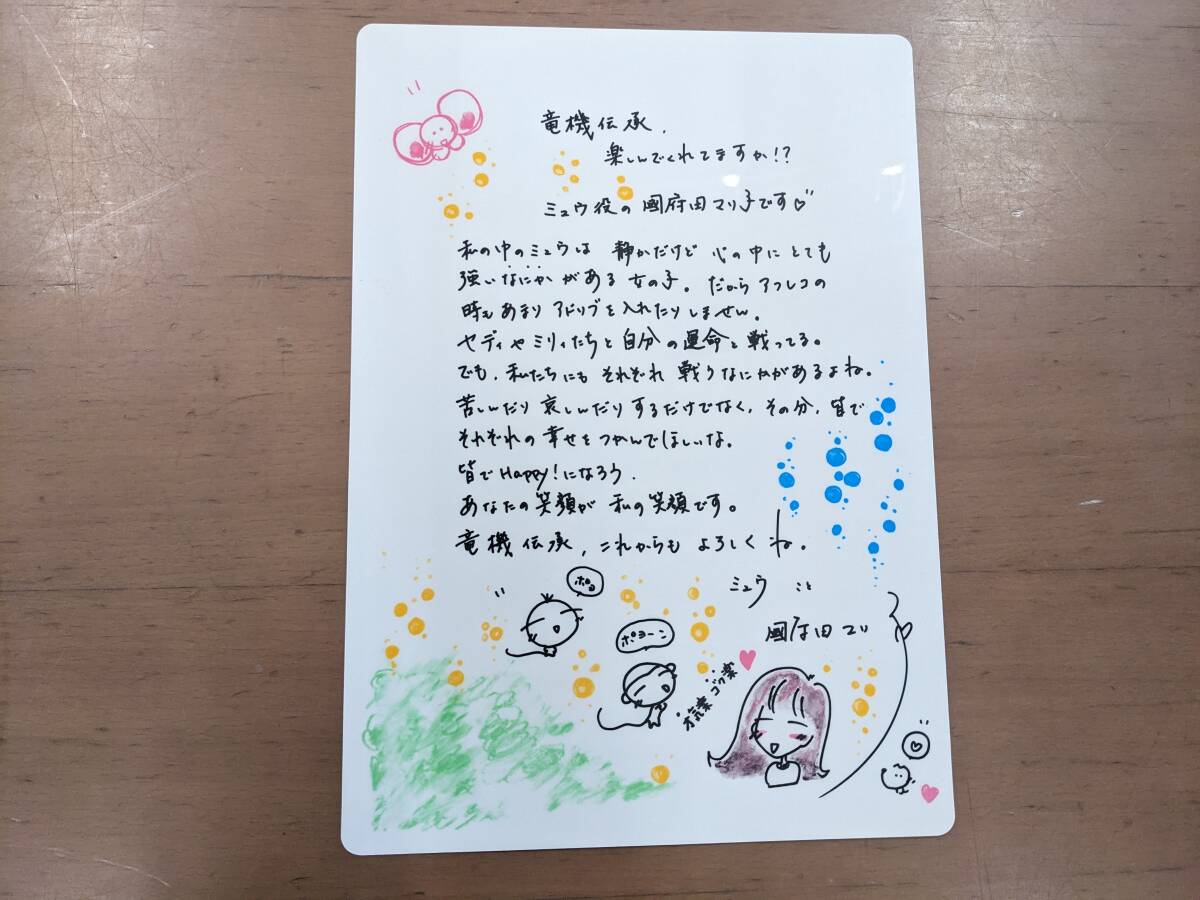 竜機伝承、
楽しんでくれてますか!?
ミュウ役の國府田マリ子です♡
私の中のミュウは 静かだけど 心の中に とても
強いなにか がある 女の子。だから アフレコの
時も あまり アドリブを入れたりしません。
ヤディや ミリィたちと 自分の運命と 戦ってる。
でも、私たちにも それぞれ 戦うなにかがあるよね。
苦しんだり 哀しんだり するだけでなく、その分、皆で
それぞれの 幸せを つかんで ほしいな。
皆で Happy!になろう.
あなたの笑顔が 私の笑顔です。
竜機伝承、これからも よろしく ね。
ミュウ こと
國府田マリ子
ポヨ
ポヨーン
気楽 ゴク楽